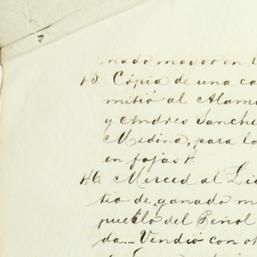 nado mayor en
45. Cópia de una ca
mitió al Alam
y Andres Sanche
Medina, para lo
en fojas
46. Merced al Li
tio de ganado m
pueblo del Peñol
da.- Vendió con ot